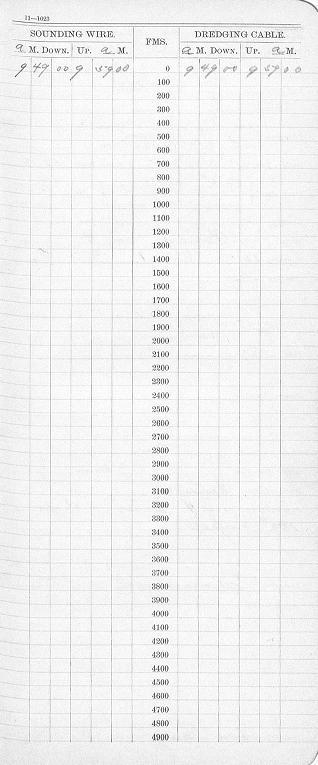 11—1023
SOUNDING WIRE. FMS. DREDGING CABLE.
a M. DOWN. UP. a M. a M. DOWN. UP. a M.
9 49 00 9 59 00 0 9 49 00 9 59 00
100
200
300
400
500
600
700
800
900
1000
1100
1200
1300
1400
1500
1600
1700
1800
1900
2000
2100
2200
2300
2400
2500
2600
2700
2800
2900
3000
3100
3200
3300
3400
3500
3600
3700
3800
3900
4000
4100
4200
4300
4400
4500
4600
4700
4800
4900